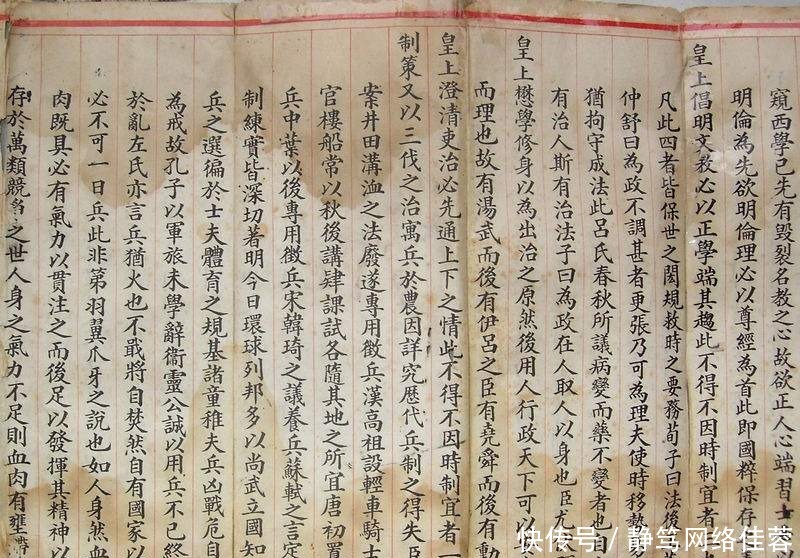 窺西學已先有毀裂名教之心故欲正人心端習士
明倫為先欲明倫理必以尊經為首此即國粹保存
皇上倡明文教必以正學端其趨此不得不因時制宜者
凡此四者皆保世之閎規救時之要務荀子曰法後
仲舒曰為政不調甚者更張乃可為理夫使時移勢
猶拘守成法此呂氏春秋所議病變而藥不變者也
有治人斯有治法子曰為政在人取人以身也臣尤
皇上懋學修身以為出治之原然後用人行政天下可以
而理也故有湯武而後有伊呂之臣有堯舜而後有勳
皇上澄清吏治必先通上下之情此不得不因時制宜者一
制策又以三代之治寓兵於農因詳究歷代兵制之得失臣
案井田溝洫之法廢遂專用徵兵漢高祖設輕車騎士
官樓船常以秋後講肄課試各隨其地之所宜唐初置
兵中葉以後專用徵兵宋韓琦之議養兵蘇軾之言定
制練實皆深切著明今日環球列邦多以尚武立國知
兵之選徧於士夫體育之規基諸童稚夫兵凶戰危自
為戒故孔子以軍旅未學辭衞靈公誠以用兵不已終
於亂左氏亦言兵猶火也不戢將自焚然自有國家以
必不可一日兵此非第羽翼爪牙之說也如人身然血
肉既具必有氣力以貫注之而後足以發揮其精神以
存於萬類競名之世人身之氣力不足則血肉有壅滯
快传号／静笃网络佳蓉